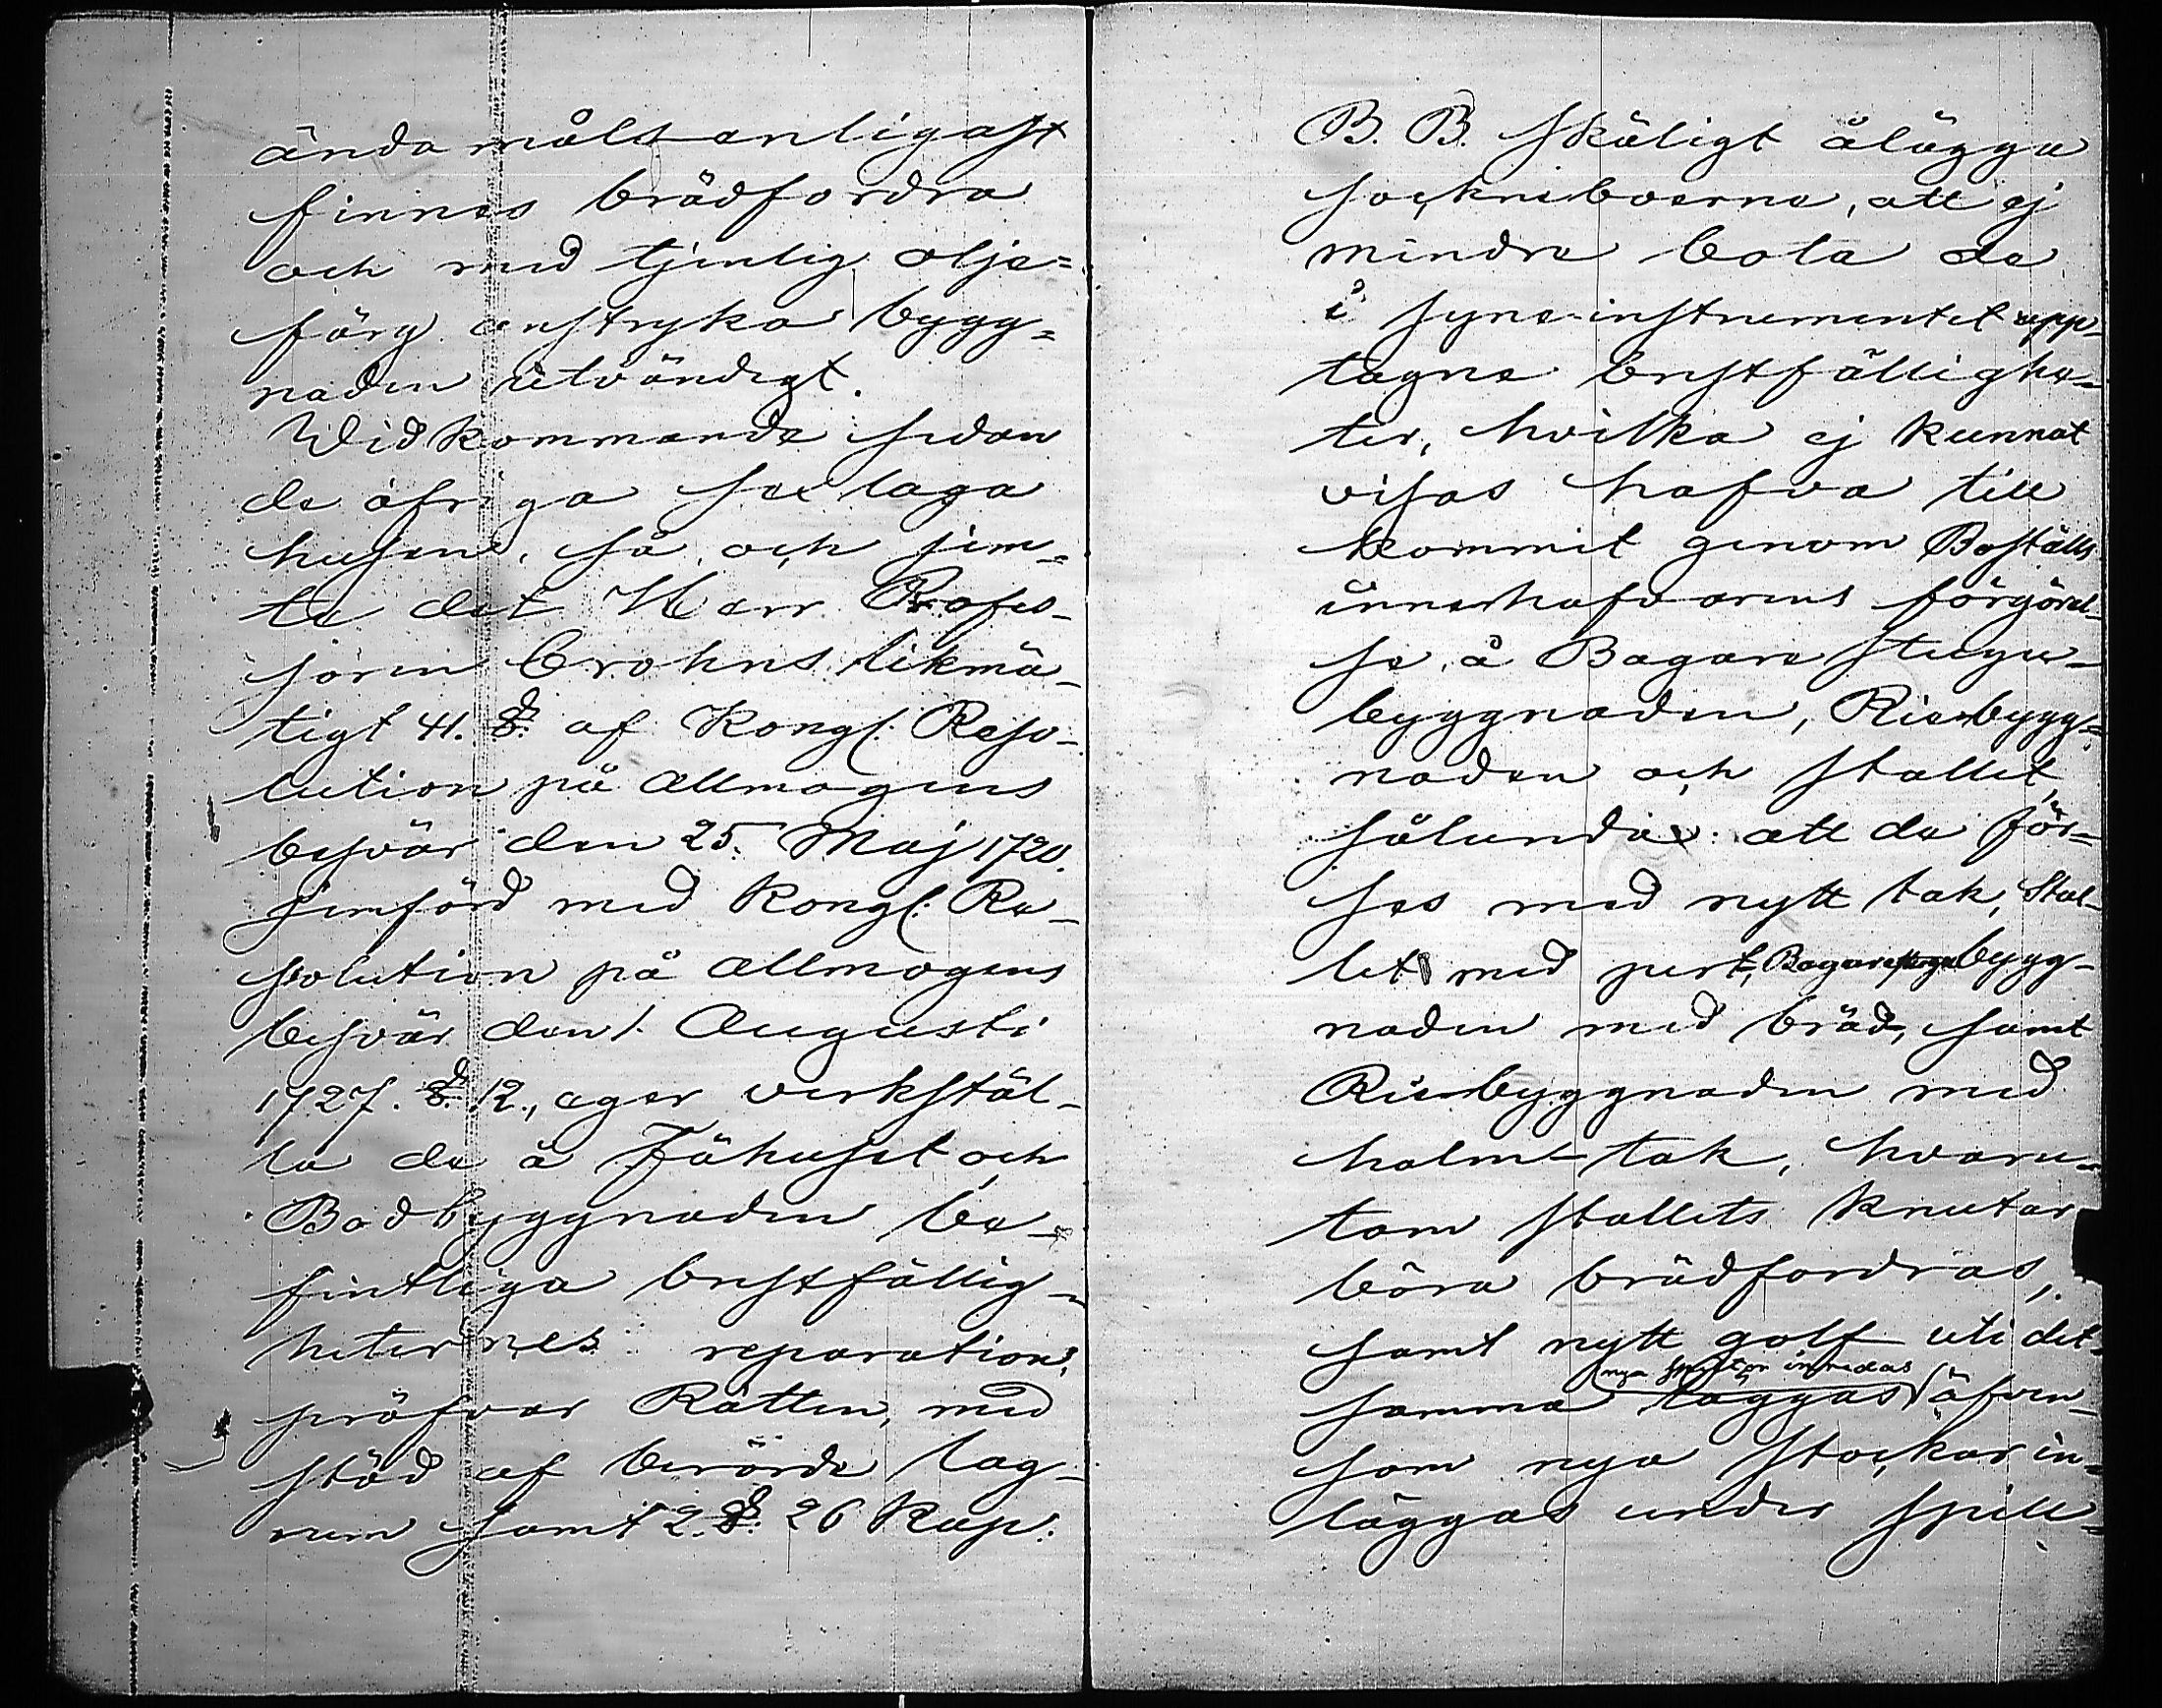 ända målsenligast
finnes brädfordra
och med tjenlig olje=
färg anstryka bygg=
naden utvändigt.
Widkommande sedan
de öfriga sex laga
husen, så och jem=
te det Herr Profes-
soren Crohns likmä-
tigt 41. §. af Kongl. Reso-
lution på Allmogens
besvär den 25. Maj 1720.
jemförd med Kongl. Re-
solution på Allmogens
besvär den 1. Augusti
1727. §. 12., eger verkstäl-
la de å Fähuset och
Bodbyggnaden be-
fintliga bristfällig-
heternes reparation,
pröfvar Rätten, med
stöd af berörde lag-
rum samt 2. §. 26 Kap.
B. B. skäligt ålägga
sockneboerne, att ej
mindre bota de
i syne-instrumentet upp-
tagne bristfällighe-
ter, hvilka ej kunnat
visas hafva till
kommit genom Boställs
innehafvarens förgörel-
se, å Bagare stugu-
byggnaden, Rie-bygg=
naden och stallet,
sålunda: att de för-
ses med nytt tak, Stal-
let med pert, Bagarestugubygg-
naden med bräd, samt
Rie-byggnaden med
halmtak, hvaru-
tom stallets knutar
böra brädfordras,
samt nytt golf uti det-
nya spiltor inredas
samma läggas äfven-
som nya stockar in=
läggas under spill=